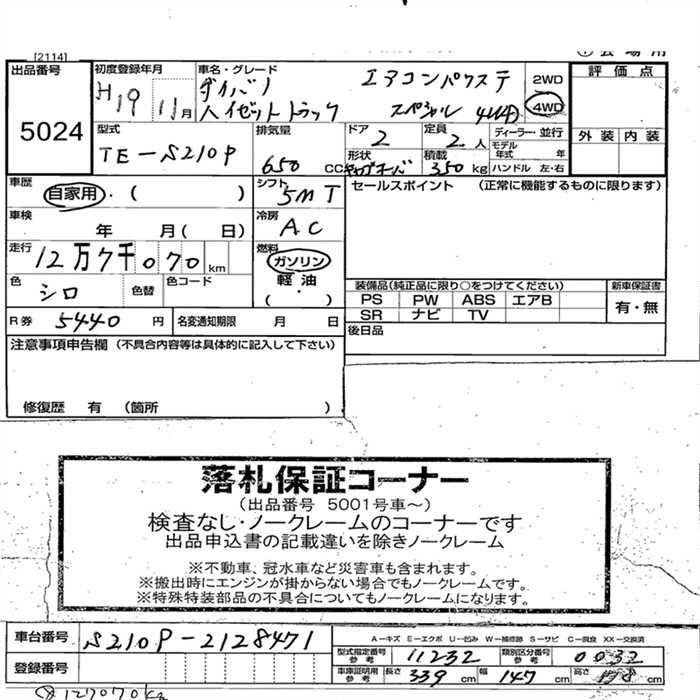 [2114]
出品番号
5024
初度登録年月
H19 11月
車名・グレード
ダイハツ エアコンパワステ
ハイゼットトラック スペシャル 4WD
2WD
4WD
評価点
外装 内装
型式
TE-S210P
排気量
650 CC
ドア
2
定員
2人
ディーラー・並行
モデル年式 年
形状
キャブオーバ
積載
350 kg
ハンドル 左・右
車歴
自家用・( )
シフト
5MT
セールスポイント (正常に機能するものに限ります)
車検
年 月( 日)
冷房
AC
走行
12万7千070km
燃料
ガソリン
軽油
・( )
色
シロ
色替
色コード
装備品(純正品に限り○をつけてください)
新車保証書
PS PW ABS エアB
SR ナビ TV
有・無
R券 5440 円
名変通知期限 月 日
後日品
注意事項申告欄 (不具合内容等は具体的に記入して下さい)
修復歴 有 (箇所 )
落札保証コーナー
(出品番号 5001号車~)
検査なし・ノークレームのコーナーです
出品申込書の記載違いを除きノークレーム
※不動車、冠水車など災害車も含まれます。
※搬出時にエンジンが掛からない場合でもノークレームです。
※特殊特装部品の不具合についてもノークレームになります。
車台番号 S210P-2128471
A-キズ E-エクボ U-凹み W-補修跡 S-サビ C-腐食 XX-交換済
型式指定番号 参考 11232
類別区分番号 参考 0032
登録番号
車庫証明用 参考 長さ 339 cm 幅 147 cm 高さ cm
127070km